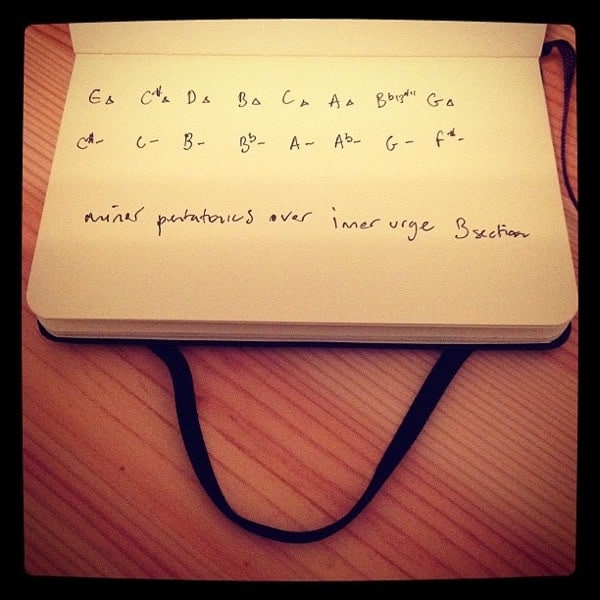 E△ C#△ D△ B△ C△ A△ Bb13#11 G△
C#- C- B- Bb- A- Ab- G- F#-
minor pentatonics over inner urge B section